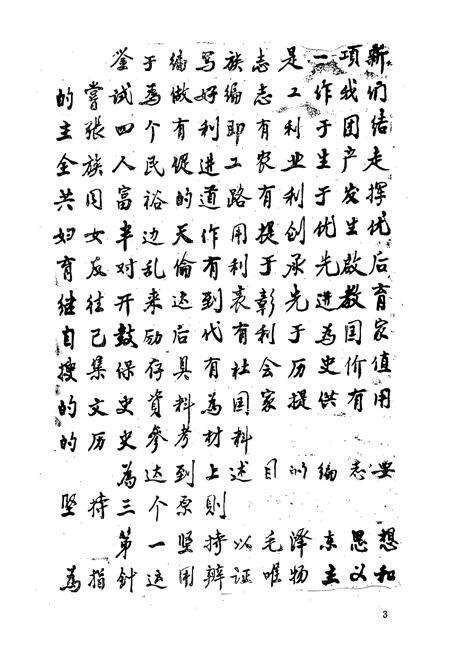 鉴于编写族志是一项新
的尝试為做好编志工作我们
主张四个有利即有利于团结
全族人民促进工农业生产走
共同富裕的道路有利于发挥
妇女半边天作用提创优生优
育反对乱伦有利于承先啟后
继往开来达到表彰先进教育
自己鼓励后代有利于為国家
搜集保存具有社会历史价值
的文史資料為国家提供有用
的历史參考材料
為达到上述目的编志要
坚持三个原則
第一坚持以毛泽东思想
為指針运用辨证唯物主义和
3